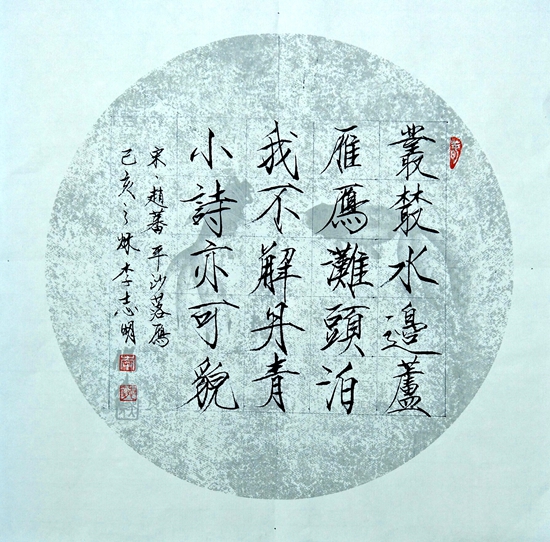 叢叢水邊蘆
雁鴈灘頭泊
我不解丹青
小詩亦可貌
宋、趙蕃平沙落鴈
己亥之秌李志明